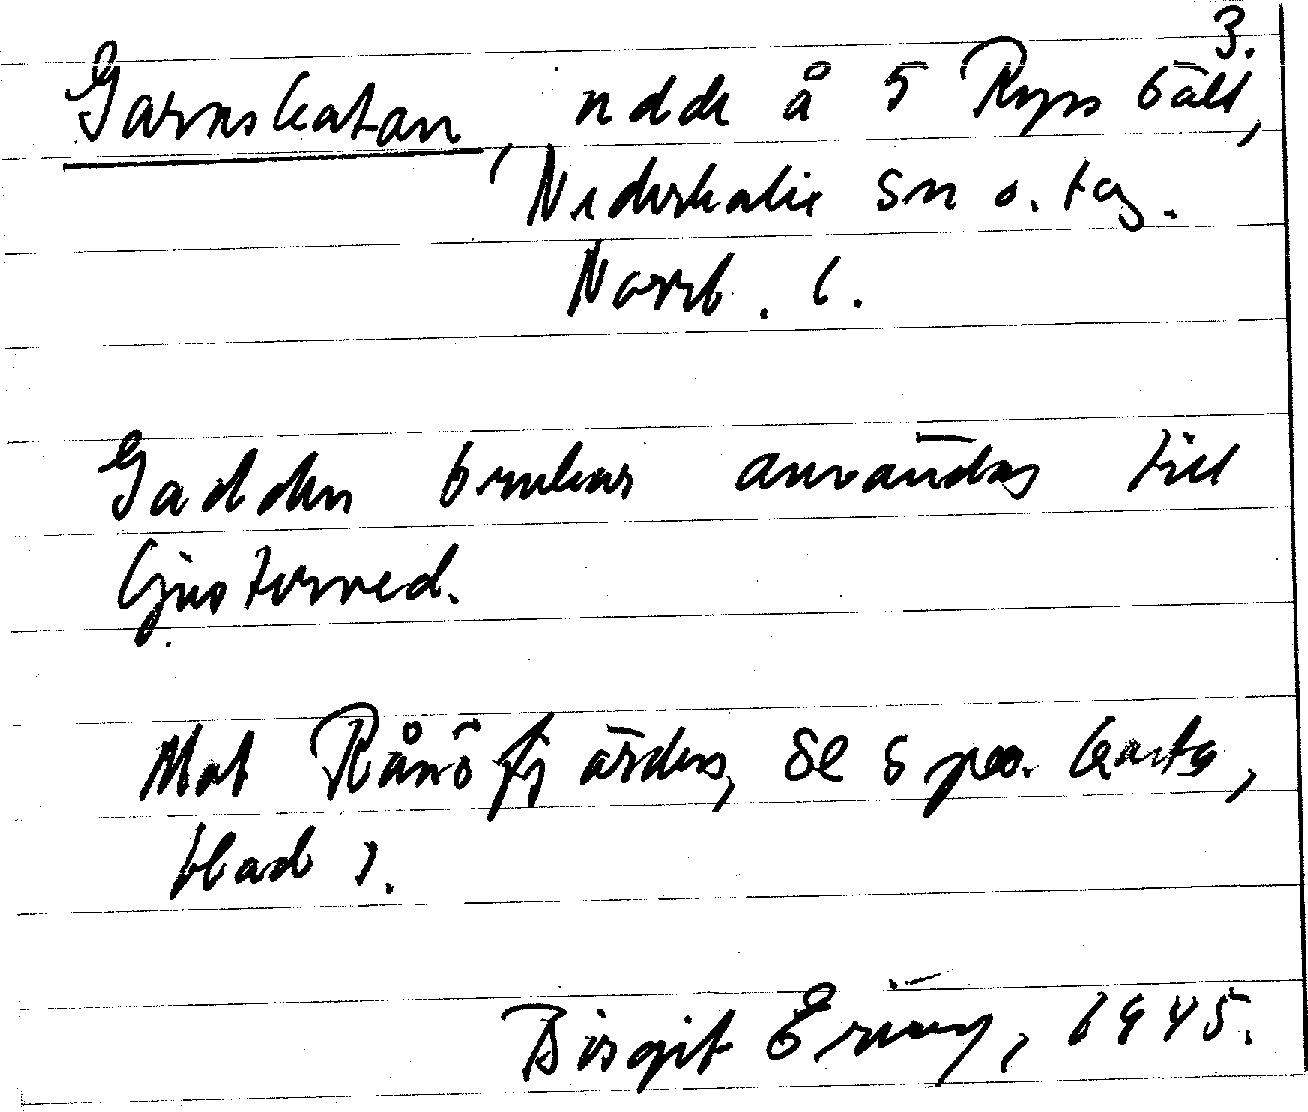 3.
Garnskatan, udde å 5 Ryssbält,
Nederkalix sn o. tg.
Norrb. l.
Gadden brukar användas till
ljusterved.
Mot Rånöfjärden, se spec. karta,
blad 7.
Birgit Erling, 1945.